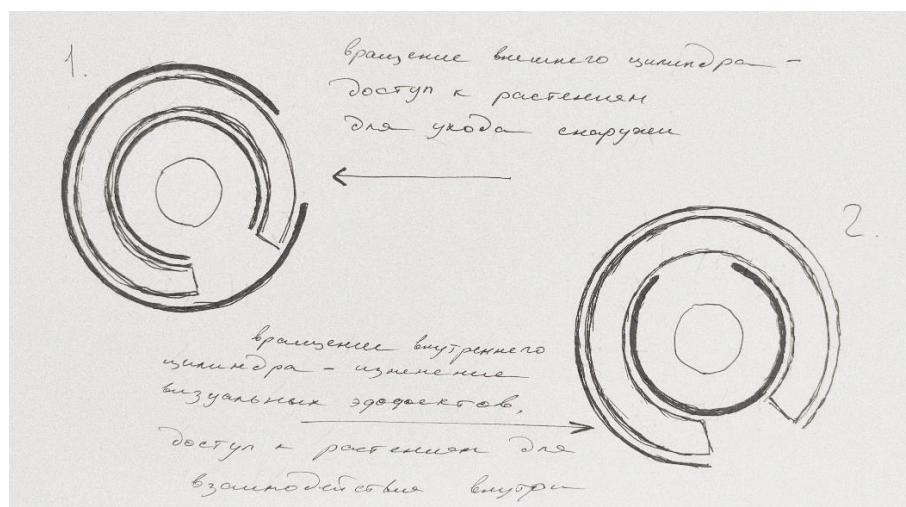 1.
вращение внешнего цилиндра –
доступ к растениям
для ухода снаружи
2.
вращение внутреннего
цилиндра – изменение
визуальных эффектов,
доступ к растениям для
взаимодействия внутри